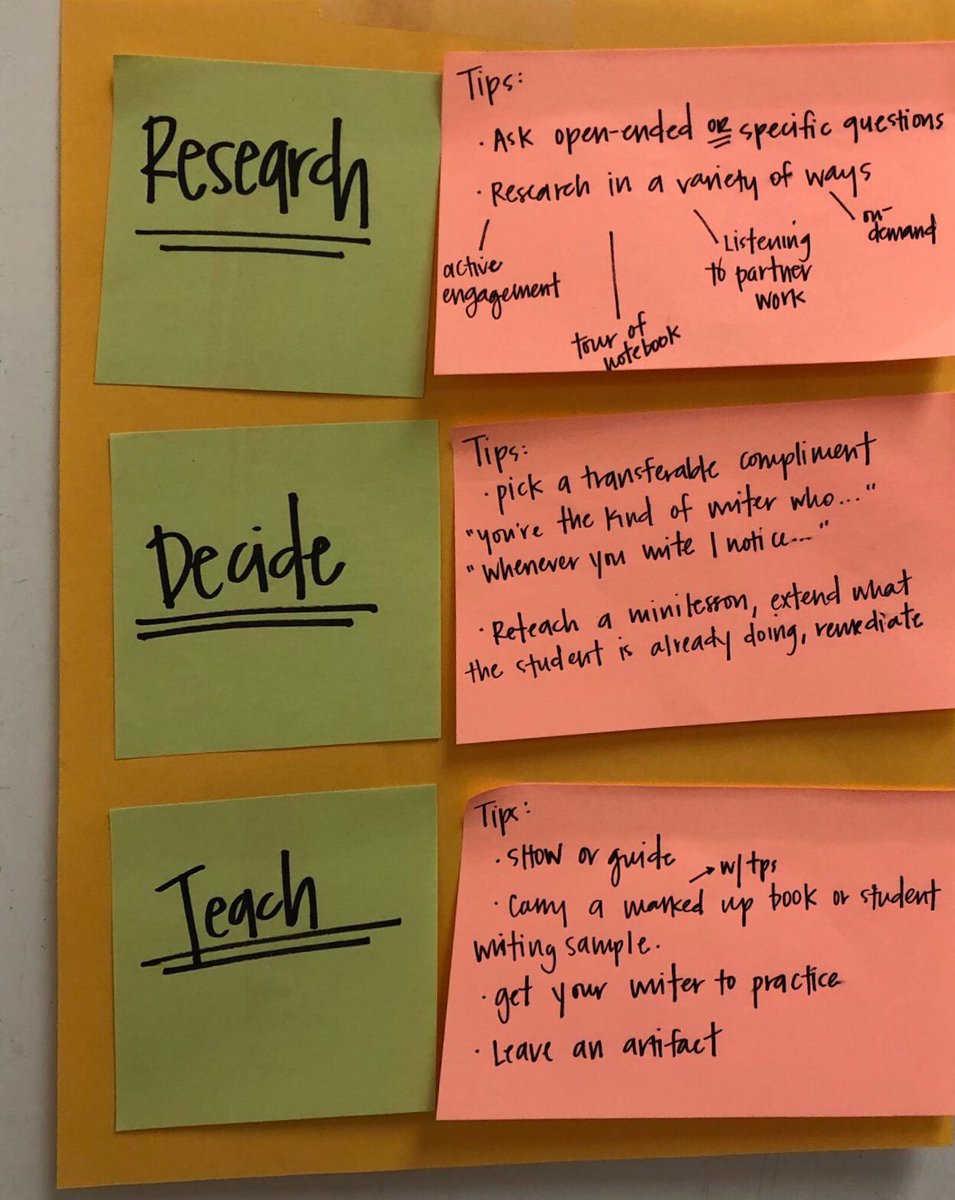 Research
Tips:
· Ask open-ended OR specific questions
· Research in a variety of ways
active
engagement
tour of
notebook
Listening
to partner
work
on-
demand
Decide
Tips:
· pick a transferable compliment
"you're the kind of writer who..."
"whenever you write I notice..."
· Reteach a minilesson, extend what
the student is already doing, remediate
Teach
Tips:
· SHOW or guide
w/tps
· Carry a marked up book or student
writing sample.
· get your writer to practice
· Leave an artifact